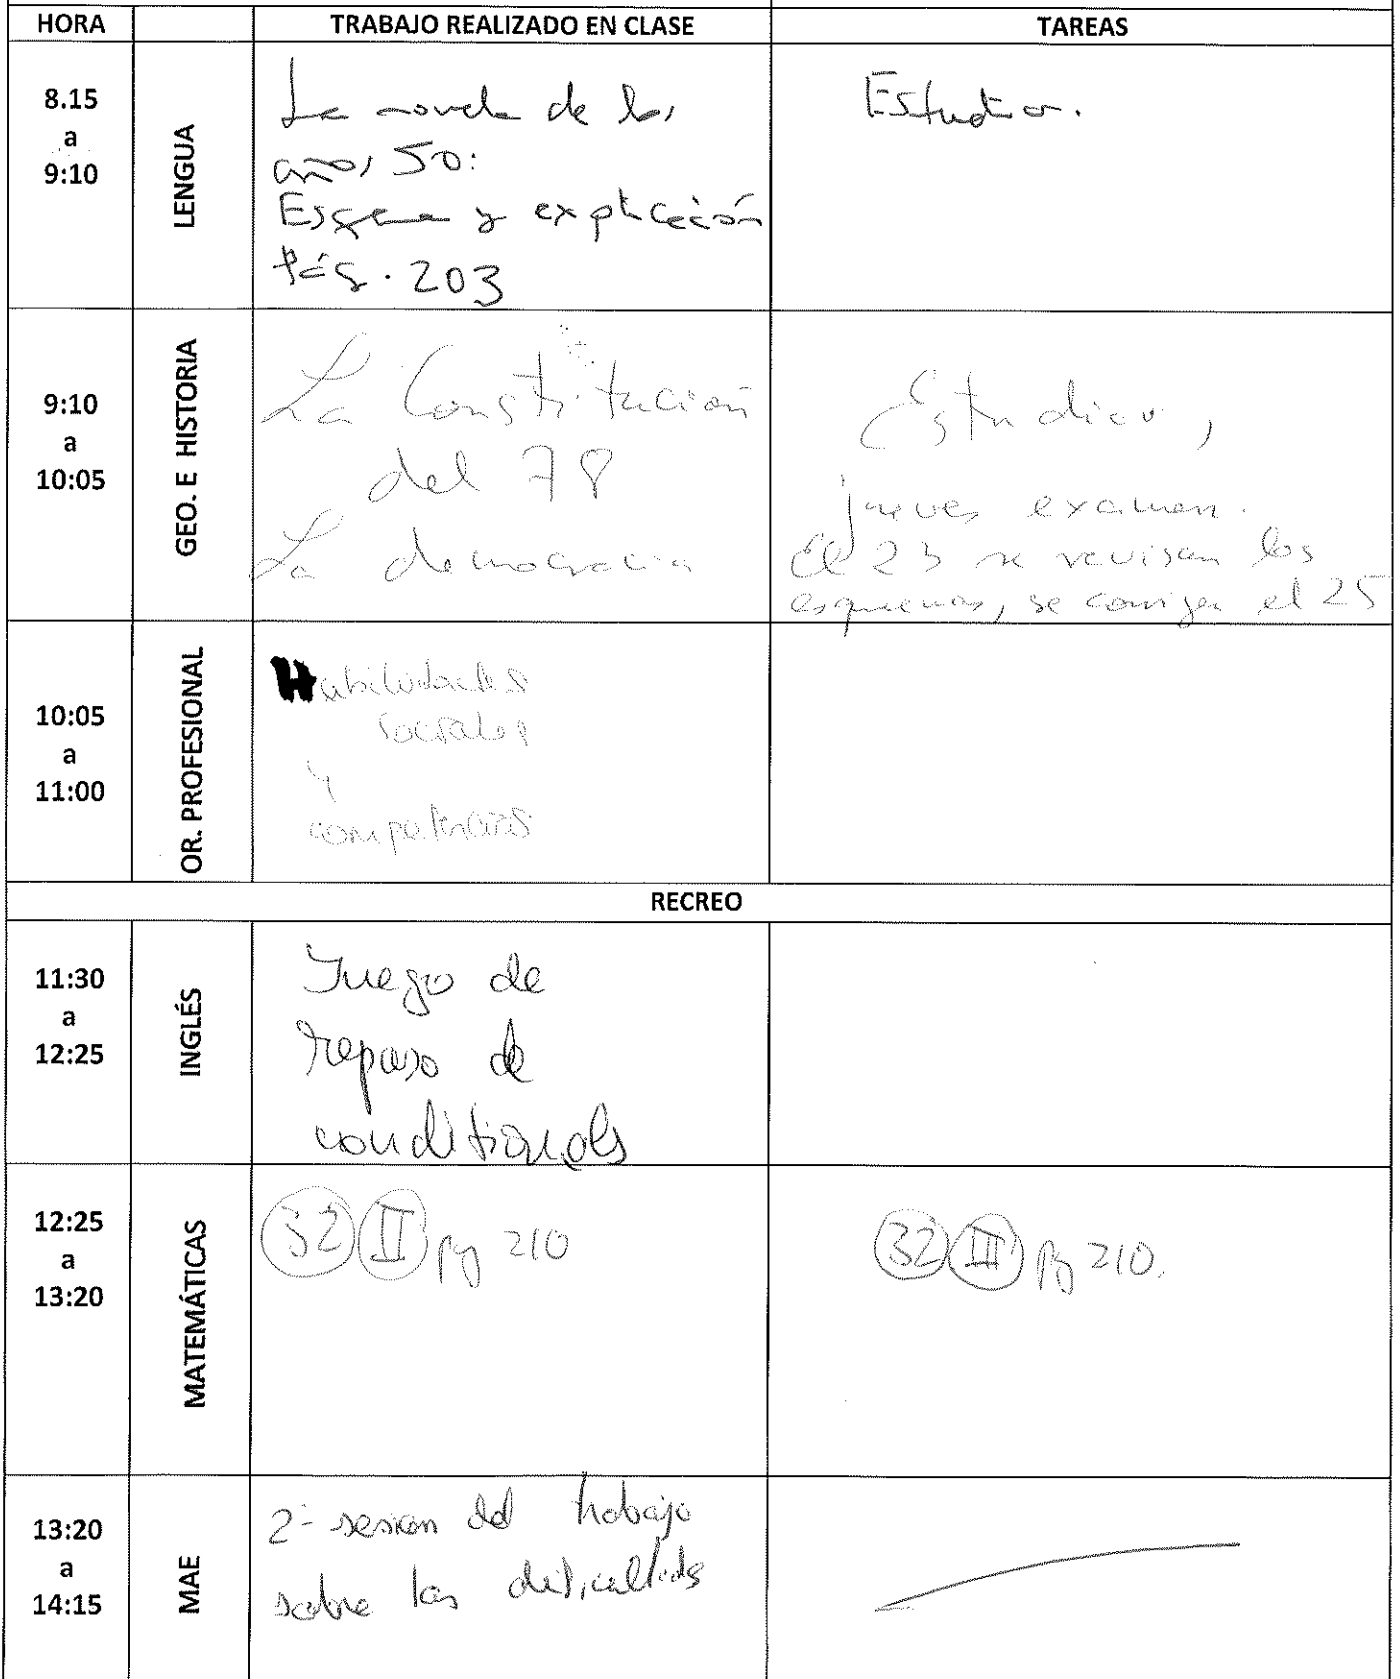 HORA TRABAJO REALIZADO EN CLASE TAREAS
8.15
a
9:10
LENGUA
La novela de los
años 50:
Esquema y explicación
Pág. 203
Estudiar.
9:10
a
10:05
GEO. E HISTORIA
La Constitución
del 78
La democracia
Estudiar,
jueves examen.
El 23 se revisan los
esquemas, se corrigen el 25
10:05
a
11:00
OR. PROFESIONAL
Habilidades
sociales
y
competencias
RECREO
11:30
a
12:25
INGLÉS
Juego de
repaso de
conditionals
12:25
a
13:20
MATEMÁTICAS
32 II pg 210
32 III pg 210.
13:20
a
14:15
MAE
2ª sesión del trabajo
sobre las